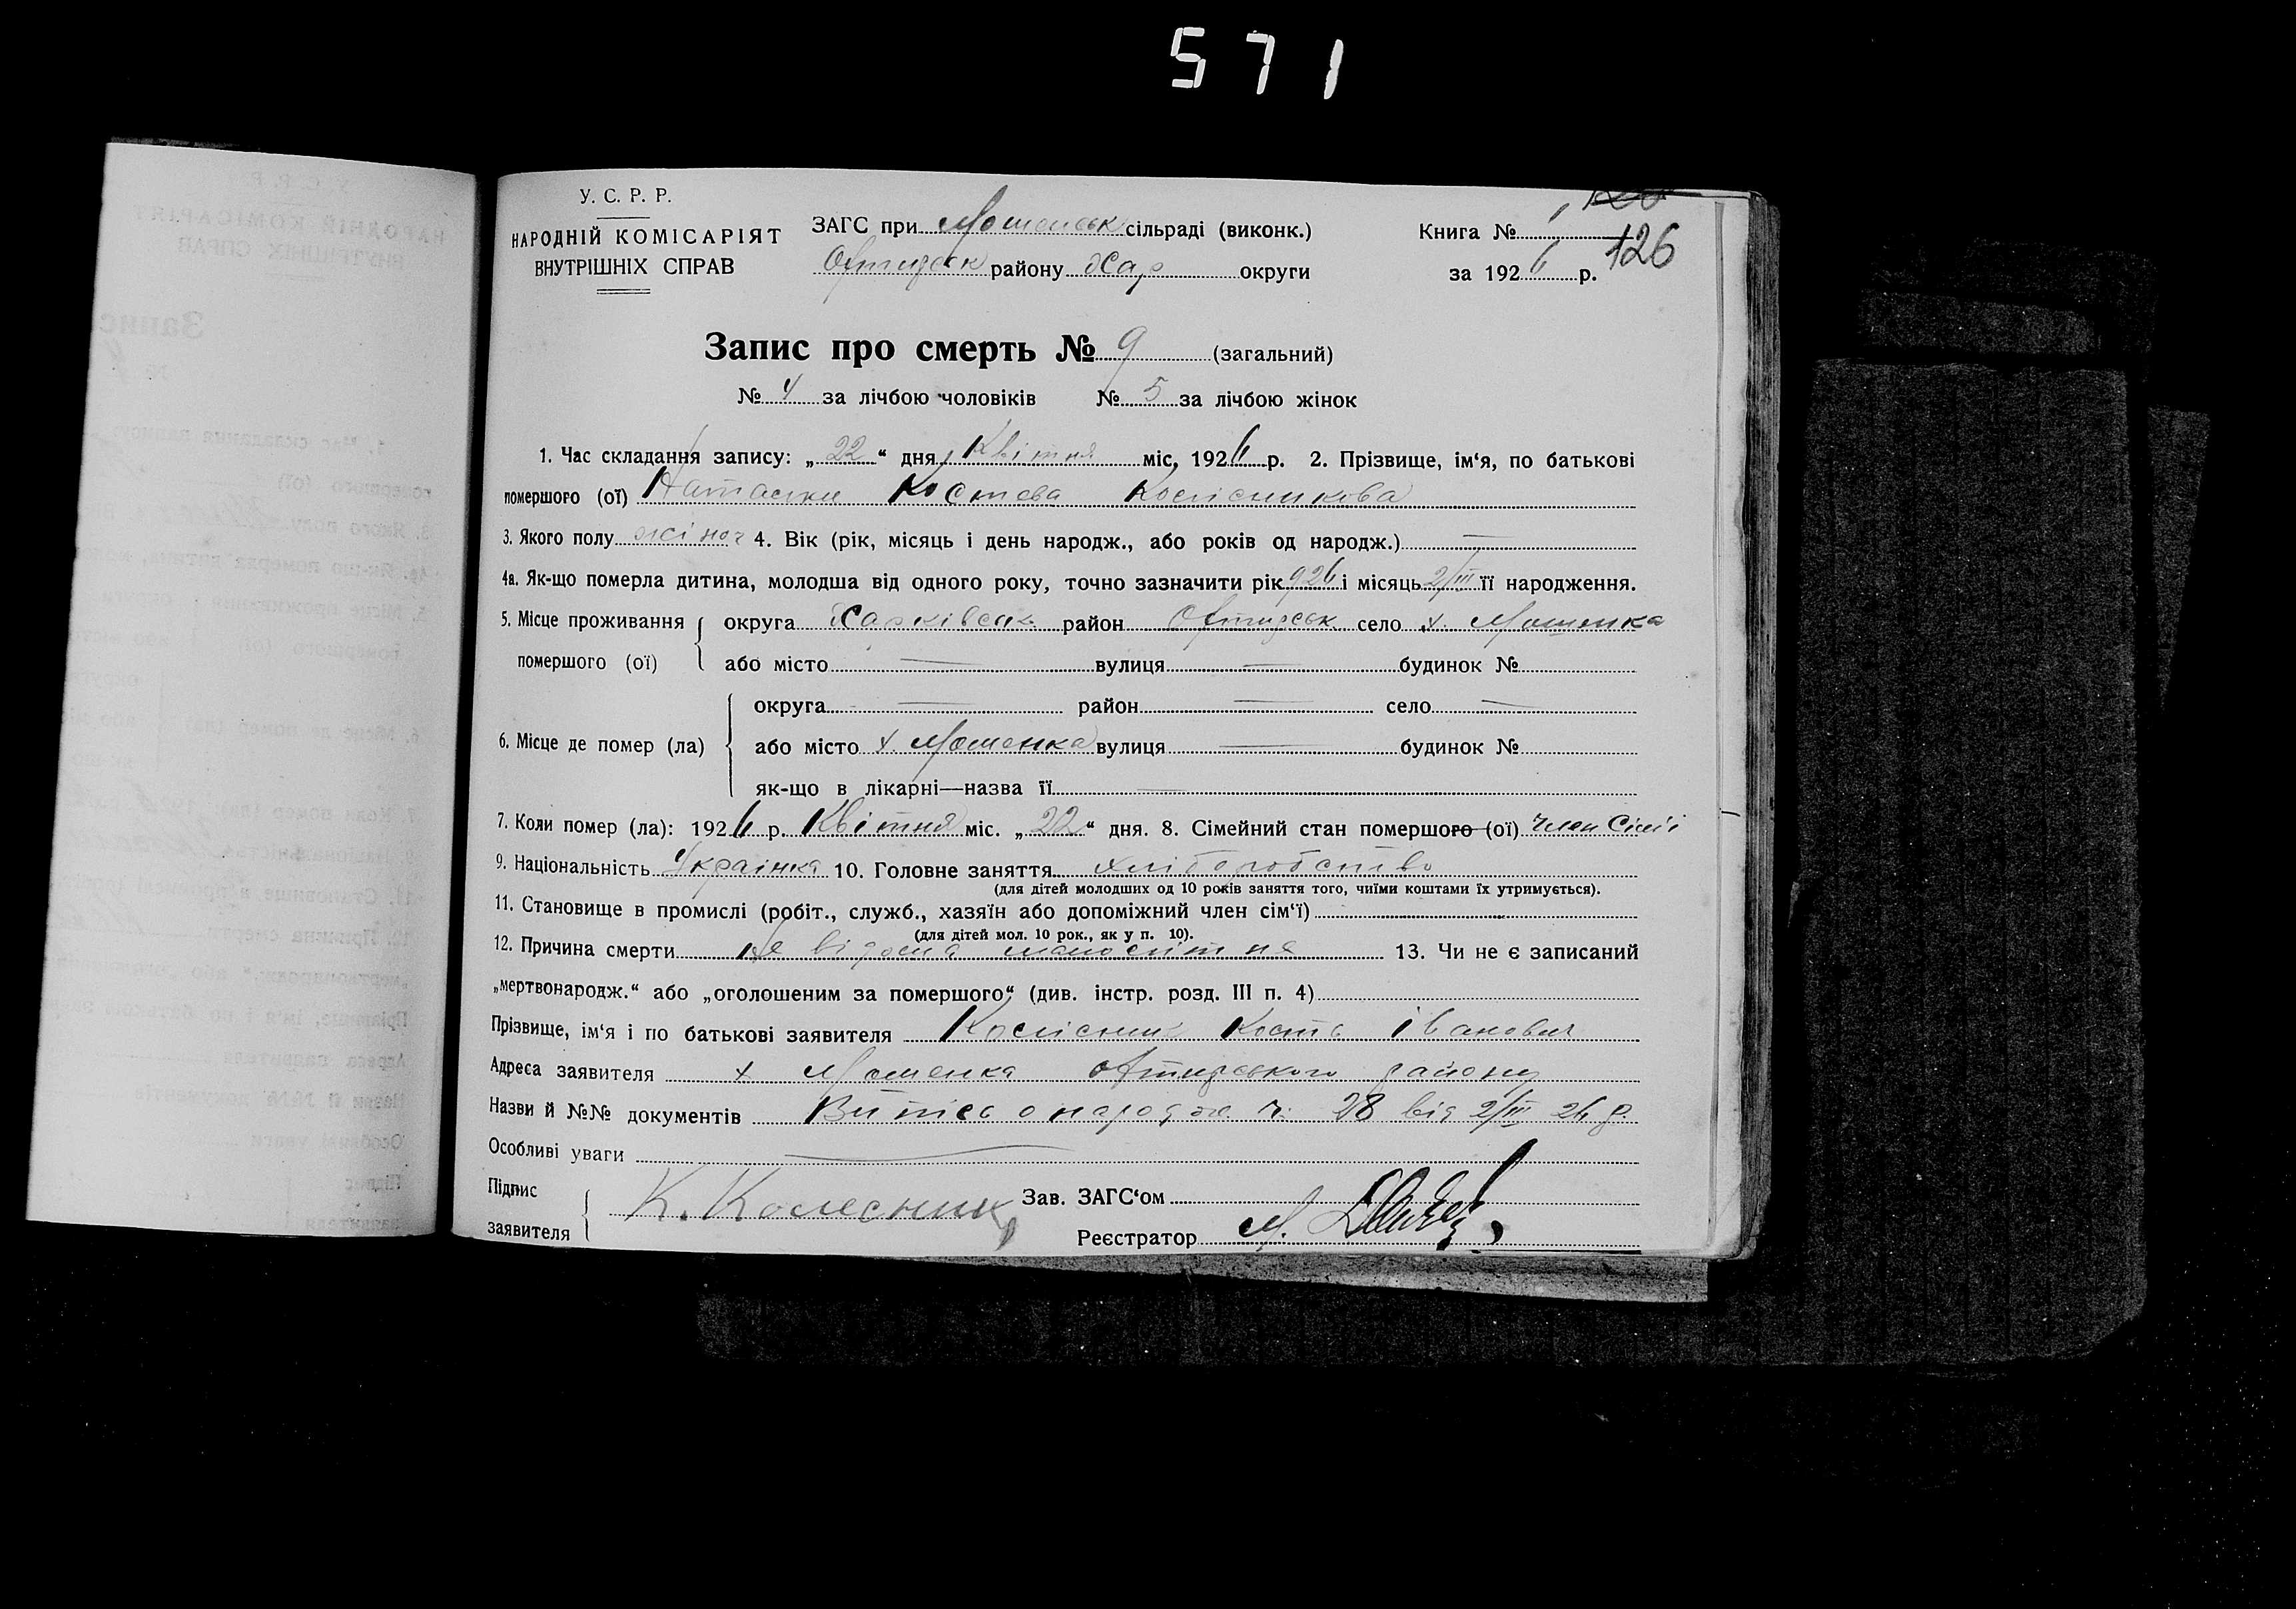 571
У. С. Р. Р.
НАРОДНІЙ КОМІСАРІЯТ
ВНУТРІШНІХ СПРАВ
ЗАГС при Мошенськ сільраді (виконк.)
району Хар округи
Книга № 1
за 1926 р.
126
Запис про смерть № 9 (загальний)
№ 4 за лічбою чоловіків № 5 за лічбою жінок
1. Час складання запису: „22“ дня Квітня міс. 1926 р. 2. Прізвище, ім‘я, по батькові
помершого (ої) Костева Колісникова
3. Якого полу жіноч 4. Вік (рік, місяць і день народж., або років од народж.) —
4а. Як-що померла дитина, молодша від одного року, точно зазначити рік 926 і місяць 2/III її народження.
5. Місце проживання помершого (ої) округа Харківськ. район село х. Мошенка
або місто — вулиця — будинок №
6. Місце де помер (ла) округа — район — село —
або місто х. Мошенка вулиця — будинок №
як-що в лікарні—назва її —
7. Коли помер (ла): 1926 р. Квітня міс. „22“ дня. 8. Сімейний стан помершого (ої) член Сімії
9. Національність Українка 10. Головне заняття хліборобство
(для дітей молодших од 10 років заняття того, чиїми коштами їх утримується).
11. Становище в промислі (робіт., служб., хазяїн або допоміжний член сім‘ї)
(для дітей мол. 10 рок., як у п. 10).
12. Причина смерти не відома малолітня 13. Чи не є записаний
„мертвонародж.“ або „оголошеним за помершого“ (див. інстр. розд. III п. 4)
Прізвище, ім‘я і по батькові заявителя Колісник Кость Іванович
Адреса заявителя х Мошенка району
Назви й №№ документів Витіс о народж ч: 28 від 2/III 26 р.
Особливі уваги —
Підпис заявителя К. Колесник
Зав. ЗАГС‘ом
Реєстратор М.